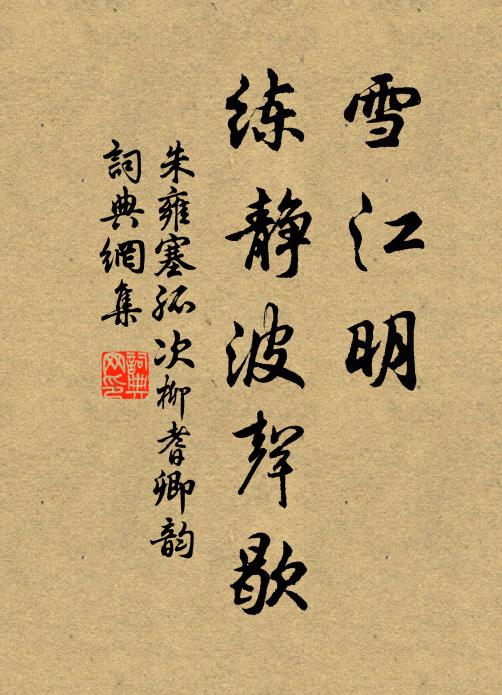 雪江明
练静波聲歇
朱雍塞孤次柳耆卿韵
詞典網集
詞典网印